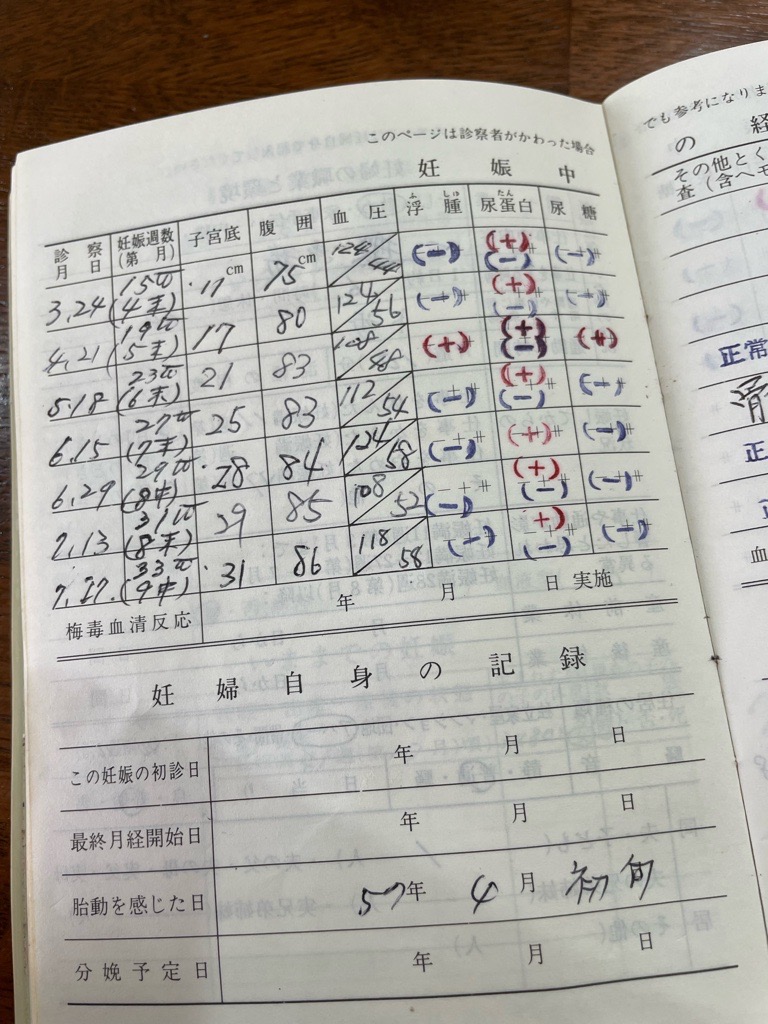 このページは診察者がかわった場合
妊娠中
診察月日 妊娠週数(第 月) 子宮底 腹囲 血圧 浮腫 尿蛋白 尿糖
ふ しゅ たん
3.24 15w (4末) 17cm 75cm 124/44 (-) (+) (-) (-)
4.21 19w (5末) 17 80 124/56 (-) (+) (-) (-)
5.18 23w (6末) 21 83 (+) (+) (-) (+)
6.15 27w (7末) 25 83 112/54 (-) (+) (-) (-)
6.29 29w (8中) 28 84 124/58 (-) (+) (-)
7.13 31w (8末) 29 85 108/52 (-) (+) (-) (-)
7.27. 33w (9中) 31 86 118/58 (-) +) (-) (-)
梅毒血清反応 年 月 日実施
妊婦自身の記録
この妊娠の初診日 年 月 日
最終月経開始日 年 月 日
胎動を感じた日 57年 4月 初旬
分娩予定日 年 月 日
でも参考になりま
の経
その他とく
査(含ヘモ
正常
正
正
血